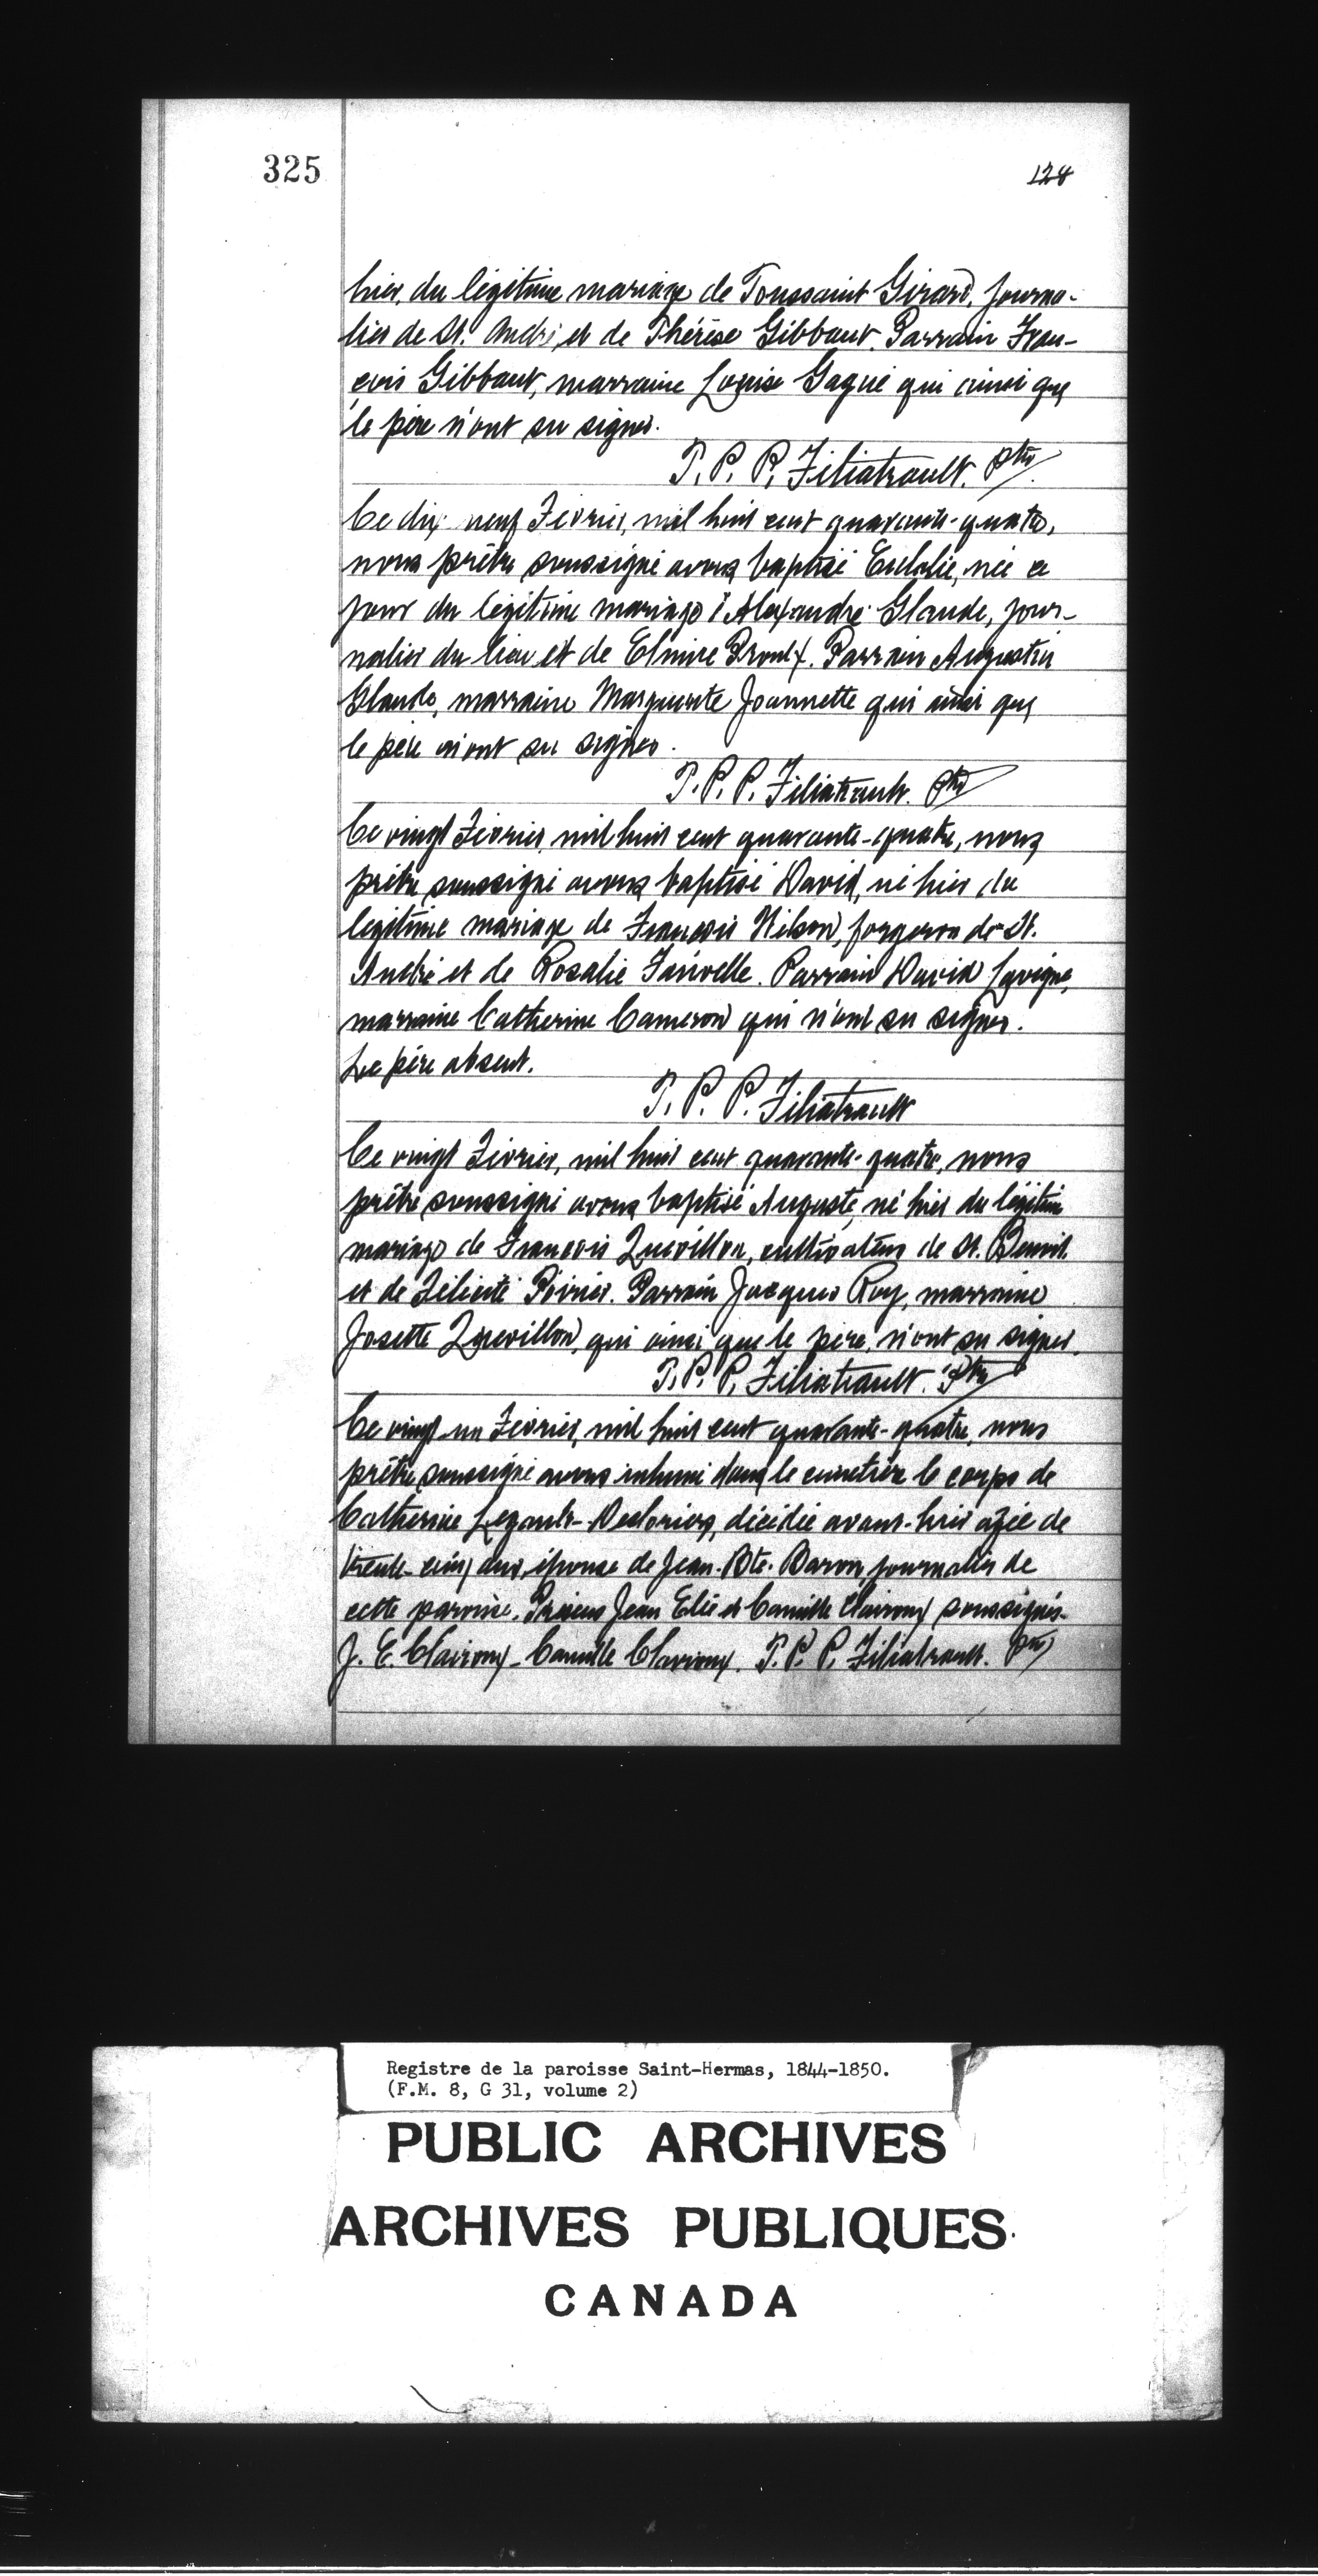 325
128
hier, du légitime mariage de Toussaint Girard, journa-
lier de St. André, et de Thérèse Gibbaut. Parrain Fran-
çois Gibbaut, marraine Louise Gagné qui ainsi que
le père n'ont su signer.
T. P. P. Filiatrault. Ptre
Ce dix neuf Février, mil huit cent quarante-quatre,
nous prêtre soussigné avons baptisé Eulalie, née ce
jour du légitime mariage d'Alexandre Glaude, jour-
nalier du lieu et de Elmire Proulx. Parrain Augustin
Glaude, marraine Marguerite Joannette qui ainsi que
le père n'ont su signer.
T. P. P. Filiatrault. Ptre
Ce vingt Février, mil huit cent quarante-quatre, nous
prêtre soussigné avons baptisé David, né hier du
légitime mariage de François Wilson, forgeron de St.
André et de Rosalie. Parrain David Lavigne,
marraine Catherine Cameron qui n'ont su signer.
Le père absent.
T. P. P. Filiatrault
Ce vingt Février, mil huit cent quarante-quatre, nous
prêtre soussigné avons baptisé Auguste, né hier du légitime
mariage de François Quevillon, cultivateur de St. Benoit
et de Félicité Poirier. Parrain Jacques Roy, marraine
Josette Quevillon, qui ainsi que le père, n'ont su signer.
T. P. P. Filiatrault. Ptre
Ce vingt-un Février, mil huit cent quarante-quatre, nous
prêtre soussigné avons inhumé dans le cimetière le corps de
Catherine Legault-Desloriers, décédée avant-hier agée de
trente-cinq ans, épouse de Jean-Bte. Baron, journalier de
cette paroisse. Présens Jean Elie et Camille Clairoux soussignés.
J. E. Clairoux - Camille Clairoux. T. P. P. Filiatrault. Ptre
Registre de la paroisse Saint-Hermas, 1844-1850.
(F.M. 8, G 31, volume 2)
PUBLIC ARCHIVES
ARCHIVES PUBLIQUES
CANADA